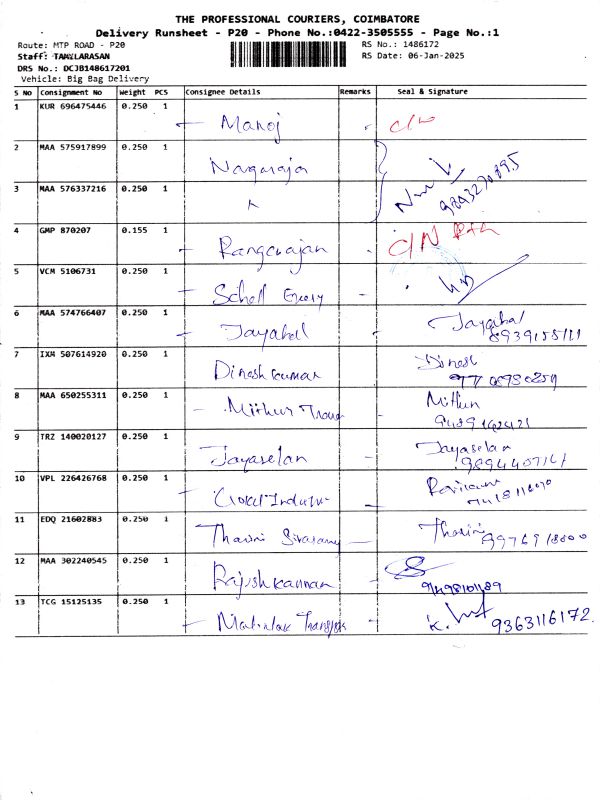 THE PROFESSIONAL COURIERS, COIMBATORE
Delivery Runsheet - P20 - Phone No.:0422-3505555 - Page No.:1
Route: MTP ROAD - P20 RS No.: 1486172
Staff: TAMILARASAN RS Date: 06-Jan-2025
DRS No.: DCJB148617201
Vehicle: Big Bag Delivery
S No Consignment No Weight PCS Consignee Details Remarks Seal & Signature
1 KUR 696475446 0.250 1 Manoj
2 MAA 575917899 0.250 1 Nagaraja
3 MAA 576337216 0.250 1 9843270895
4 GMP 870207 0.155 1 Rangarajan
5 VCM 5106731 0.250 1
6 MAA 574766407 0.250 1 Jayabal Jayabal
8939155111
7 IXM 507614920 0.250 1 Dineshkumar Dinesh
8 MAA 650255311 0.250 1 Mithun
9 TRZ 140020127 0.250 1 Jayaselan Jayaselan
10 VPL 226426768 0.250 1
11 EDQ 21602883 0.250 1 Tharini Tharini
12 MAA 302240545 0.250 1 Rajeshkannan
9498101189
13 TCG 15125135 0.250 1 K. 9363116172